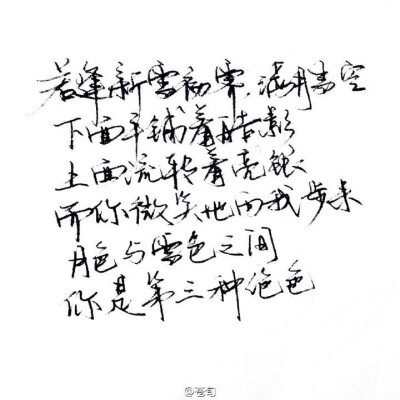 若逢新雪初霁，满月当空
下面平铺着皓影
上面流转着亮银
而你微笑地向我步来
月色与雪色之间
你是第三种绝色
@苍旬